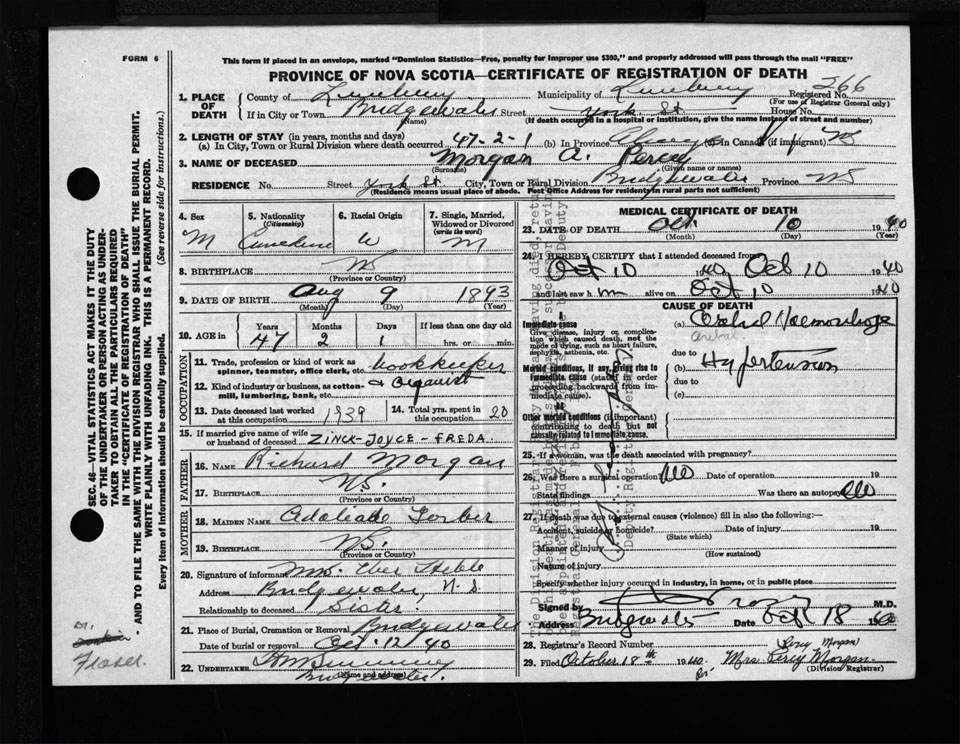 FORM 6
This form if placed in an envelope, marked "Dominion Statistics—Free, penalty for improper use $300," and properly addressed will pass through the mail "FREE"
PROVINCE OF NOVA SCOTIA—CERTIFICATE OF REGISTRATION OF DEATH
SEC. 46—VITAL STATISTICS ACT MAKES IT THE DUTY
OF THE UNDERTAKER OR PERSON ACTING AS UNDER-
TAKER TO OBTAIN ALL THE PARTICULARS REQUIRED
IN THE "CERTIFICATE OF REGISTRATION OF DEATH"
AND TO FILE THE SAME WITH THE DIVISION REGISTRAR WHO SHALL ISSUE THE BURIAL PERMIT.
WRITE PLAINLY WITH UNFADING INK. THIS IS A PERMANENT RECORD.
Every item of information should be carefully supplied. (See reverse side for instructions.)
1. PLACE OF DEATH County of Lunenburg Municipality of Lunenburg Registered No. 366
(For use of Registrar General only)
If in City or Town Bridgewater Street York St House No.
(Name) (If death occurred in a hospital or institution, give the name instead of street and number)
2. LENGTH OF STAY (in years, months and days)
(a) In City, Town or Rural Division where death occurred 47-2-1 (b) In Province (c) In Canada (if immigrant)
3. NAME OF DECEASED Morgan A. Percy
(Surname) (Given name or names)
RESIDENCE No. Street York St. City, Town or Rural Division Bridgewater Province NS
(Residence means usual place of abode. Post Office Address for residents in rural parts not sufficient)
4. Sex M
5. Nationality (Citizenship)
6. Racial Origin W
7. Single, Married, Widowed or Divorced (write the word) M
8. BIRTHPLACE NS
(Province or Country)
9. DATE OF BIRTH Aug 9 1893
(Month) (Day) (Year)
10. AGE in Years 47 Months 2 Days 1 If less than one day old hrs. or min.
OCCUPATION
11. Trade, profession or kind of work as spinner, teamster, office clerk, etc. bookkeeper
12. Kind of industry or business, as cotton-mill, lumbering, bank, etc. & Organist
13. Date deceased last worked at this occupation 1939 14. Total yrs. spent in this occupation 20
15. If married give name of wife or husband of deceased ZINCK-JOYCE-FREDA.
FATHER
16. NAME Richard Morgan
17. BIRTHPLACE NS.
(Province or Country)
MOTHER
18. MAIDEN NAME
19. BIRTHPLACE NS.
(Province or Country)
20. Signature of informant Mrs.
Address Bridgewater, N.S
Relationship to deceased Sister.
21. Place of Burial, Cremation or Removal Bridgewater
Date of burial or removal Oct 12 40
22. UNDERTAKER
Bridgewater.
(Name and address)
MEDICAL CERTIFICATE OF DEATH
23. DATE OF DEATH Oct 10 1940
(Month) (Day) (Year)
24. I HEREBY CERTIFY that I attended deceased from
Oct 10 1940 Oct 10 1940
and last saw him alive on Oct 10 1940
CAUSE OF DEATH
Immediate cause
Give disease, injury or complication which caused death, not the mode of dying, such as heart failure, asphyxia, asthenia, etc.
(a) Hemorrhage
due to
Morbid conditions, if any, giving rise to immediate cause (stated in order proceeding backwards from immediate cause).
(b) Hypertension
due to
(c)
Other morbid conditions (if important) contributing to death but not causally related to immediate cause.
25. If a woman, was the death associated with pregnancy?
26. Was there a surgical operation No Date of operation 19
State findings Was there an autopsy No
27. If death was due to external causes (violence) fill in also the following:—
Accident, suicide or homicide? Date of injury 19
(State which)
Manner of injury
(How sustained)
Nature of injury
Specify whether injury occurred in industry, in home, or in public place
Signed by M.D.
Address Bridgewater Date Oct 18 1940
28. Registrar's Record Number
29. Filed October 18th 1940 Mrs. Percy Morgan
(Division Registrar)
Percy Morgan
Dr.
Fraser.